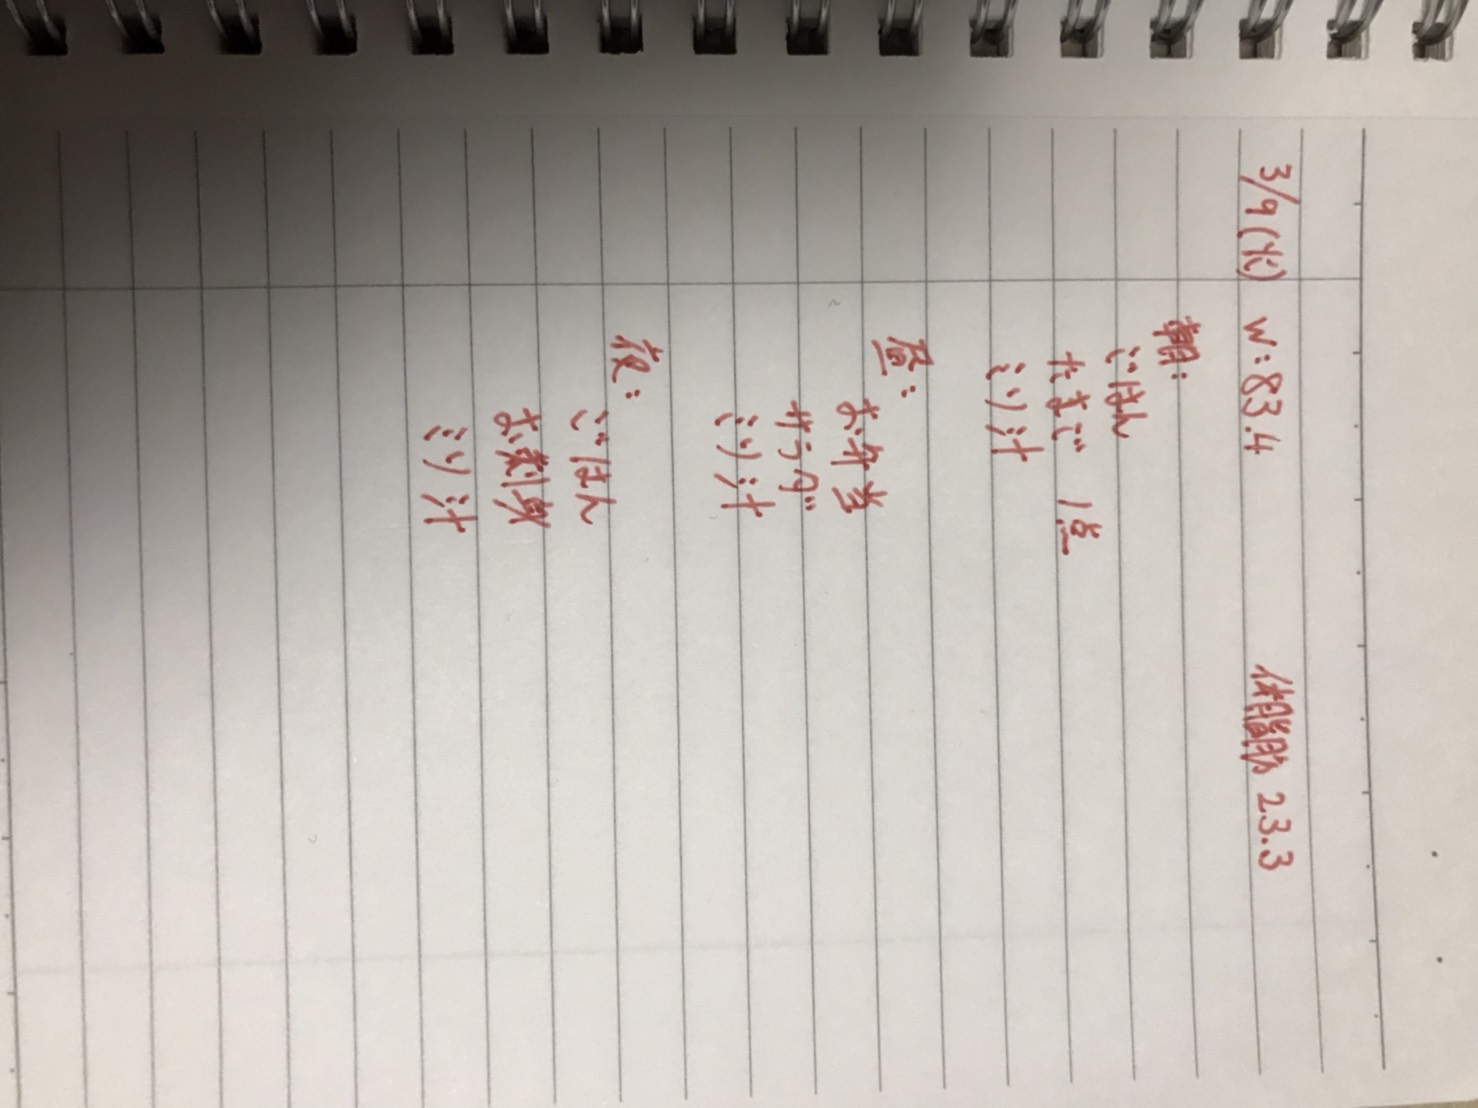 3/9(火) W:83.4 体脂肪 23.3
朝:
ごはん
たまご 1点
ミソ汁
昼:
お弁当
サラダ
ミソ汁
夜:
ごはん
お刺身
ミソ汁